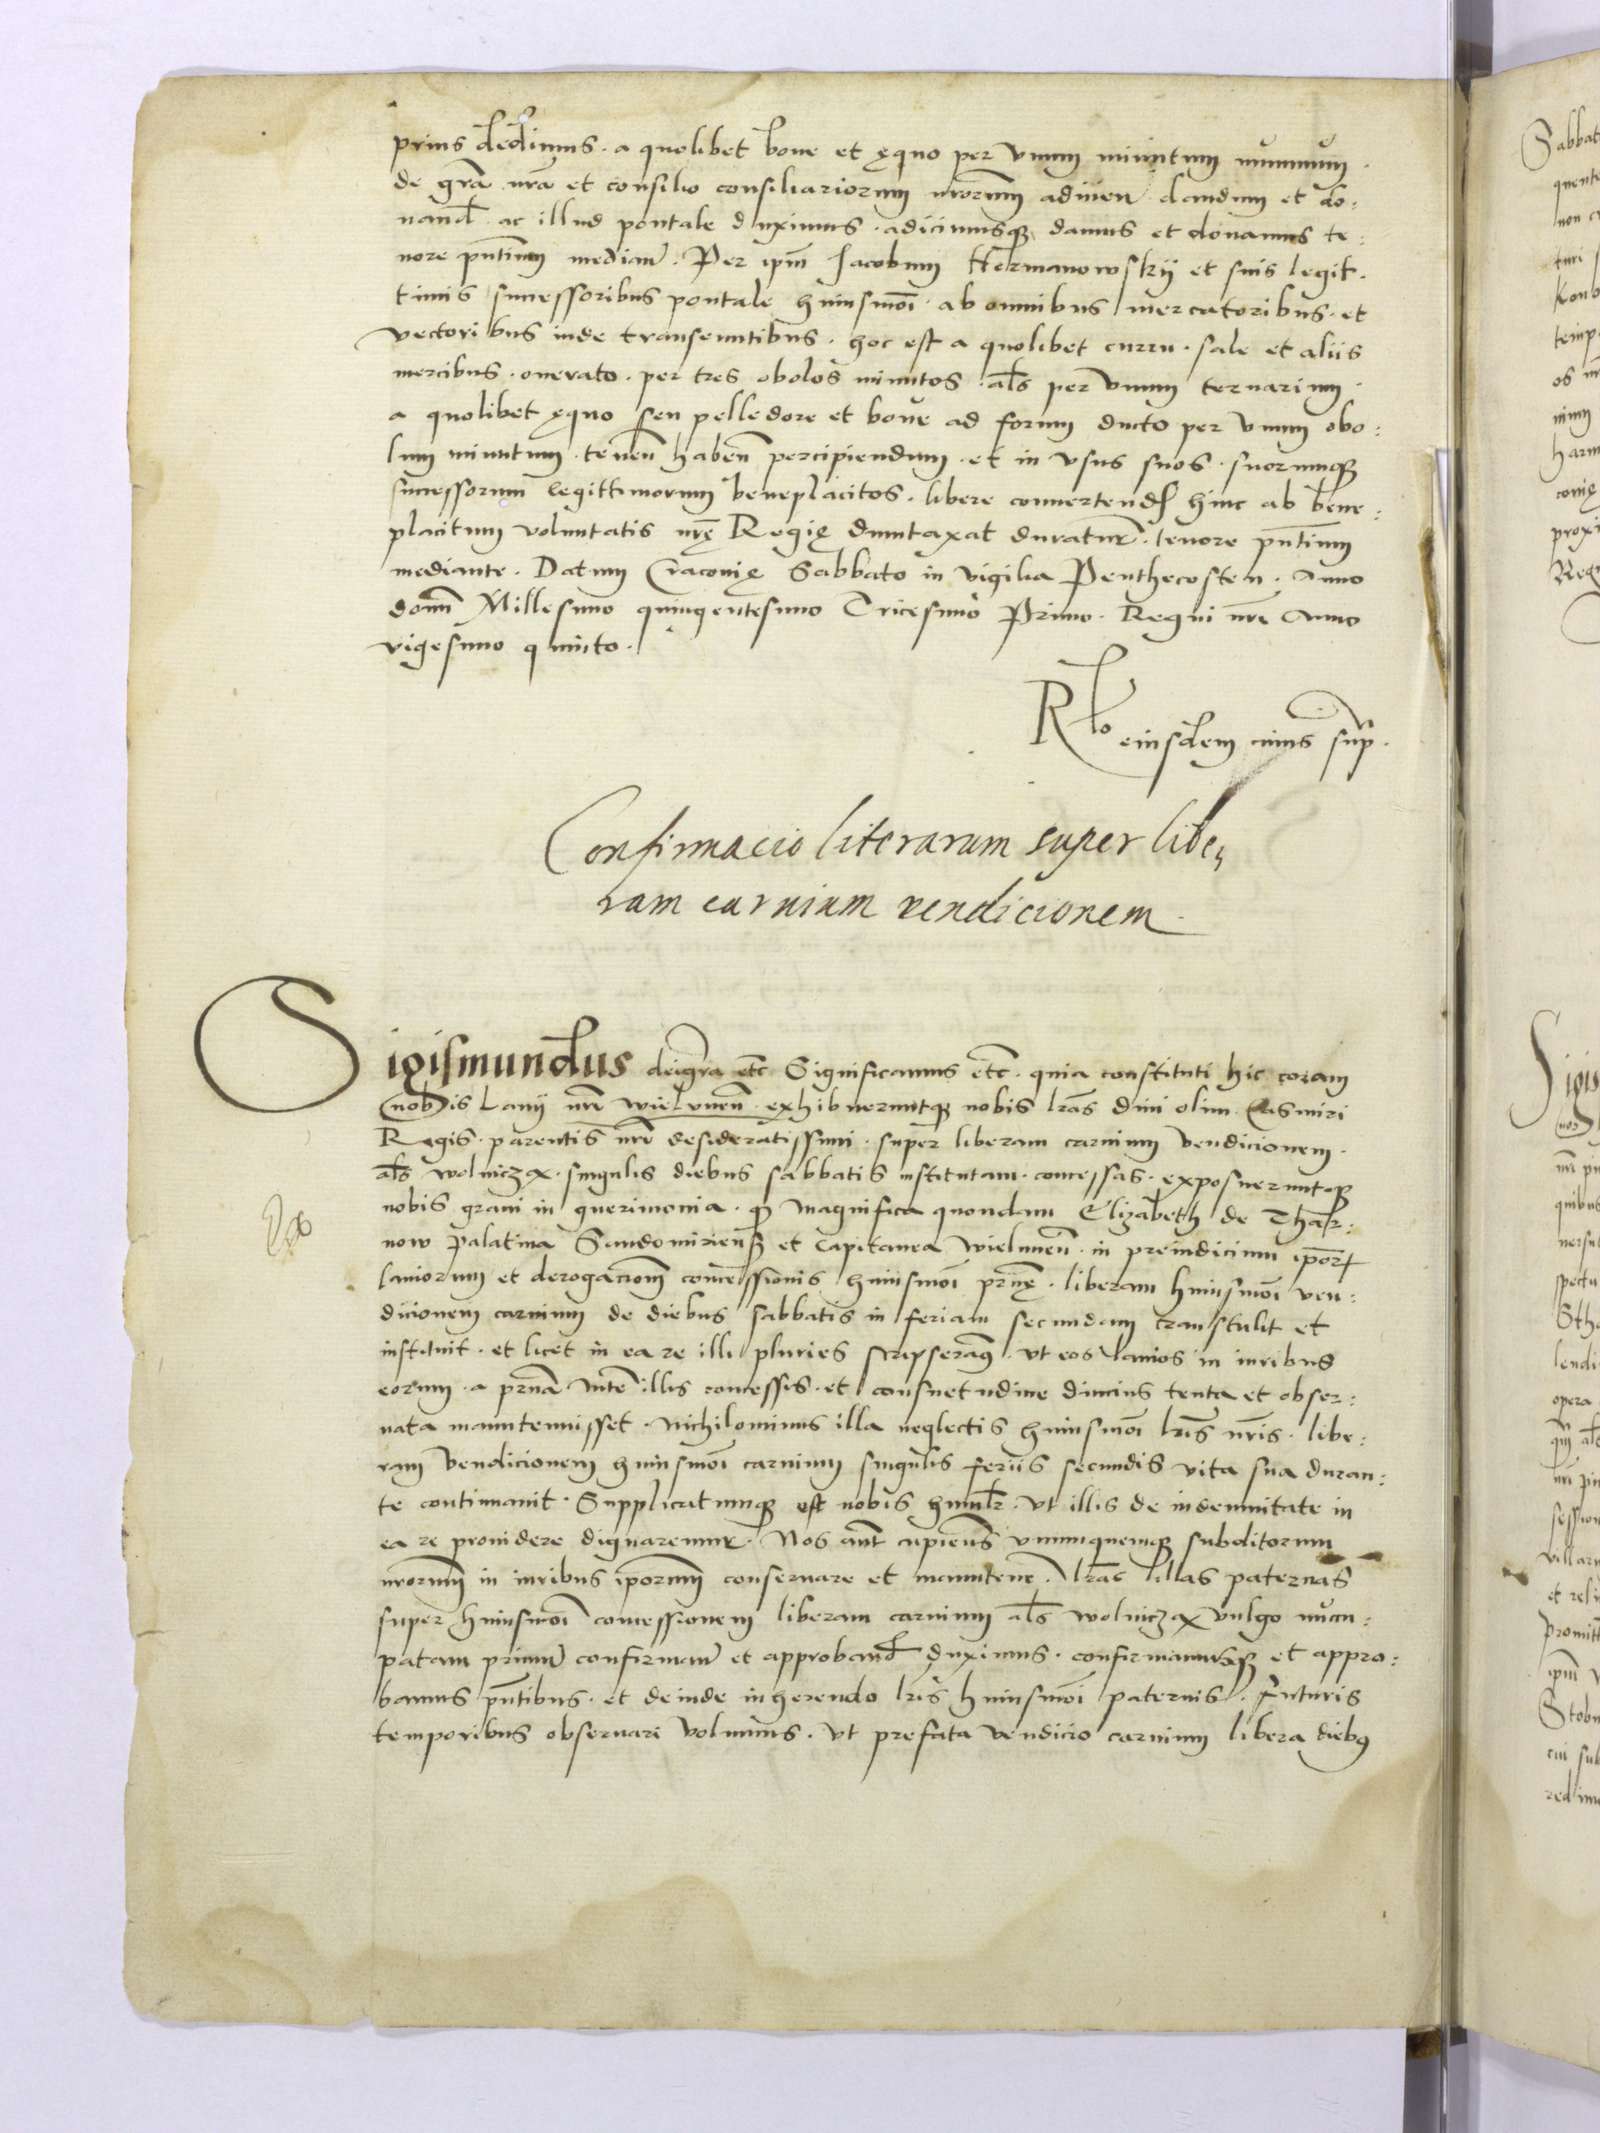 prius dedimus · a quolibet bove et ęquo per unum minutum nummum ·
de gra nra et consilio consiliariorum nrorum adiiven dandum et do:
nand ac illud pontale duximus · adicimusq damus et donamus te:
nore pntium median · Per ipm Jacobum Kormanowskÿ et suis legit·
timis successoribus pontale huiusmoi · ab omnibus mercatoribus · et
vectoribus inde transeuntibus · hoc est a quolibet curru · sale et aliis
mercibus · onerato · per tres obolos minutos · als per unum ternarium ·
a quolibet ęquo seu pelledore et bove ad forum ducto per unum obo:
lum minutum · tenen haben percipiendum · et in usus suos · suorumq
successorum legittimorum beneplacitos · libere convertend hinc ab bene:
placitum voluntatis nrę Regię duntaxat duratur · tenore pntium
mediante · Datum Cracovię Sabbato in vigilia Penthecosten · Anno
domi Millesimo quingentesimo Tricesimo Primo · Regni nri Anno
vigesimo quinto ·
Rlo eiusdem cuius sup ·
Confirmacio literarum super libe,
ram carnium vendicionem ·
Sigismundus dei gra etc Significamus etc · quia constituti hic coram
nobis Lanij nri wielunen · exhibueruntq nobis lras divi olim Casmiri
Regis · parentis nri desideratissimi · super liberam carnium vendicionem ·
als wolniczą · singulis diebus sabbatis institutam · concessas · exposueruntq
nobis gravi in querimonia · q Magnifica quondam Elizabeth de Thar:
now Palatina Sandomiriens et Capitanea wielunen · in preiudicium ipor
laniorum et derogacionem concessionis huiusmoi prnę · liberam huiusmoi ven:
dicionem carnium de diebus sabbatis in feriam secundam transtulit et
instituit · et licet in ea re illi pluries scripseramus · ut eos lanios in iuribus
eorum · a prna mte illis concessis · et consuetudine diucius tenta et obser:
vata manutenuisset · Nichilominus illa neglectis huiusmoi lris nris · libe:
ram vendicionem huiusmoi carnium singulis feriis secundis vita sua duran:
te continuavit · Supplicatumq est nobis humlr · ut illis de indemnitate in
ea re providere dignaremur · Nos aut cupiens unumquemq subditorum
nrorum in iuribus iporum conservare et manuten · lras illas paternas
super huiusmoi concessionem liberam carnium als wolniczą vulgo nuncu:
patam primum confirman et approband duximus · confirmamusq et appro:
bamus pntibus · et deinde inherendo lris huiusmoi paternis · futuris
temporibus observari volumus · ut prefata vendicio carnium libera diebus